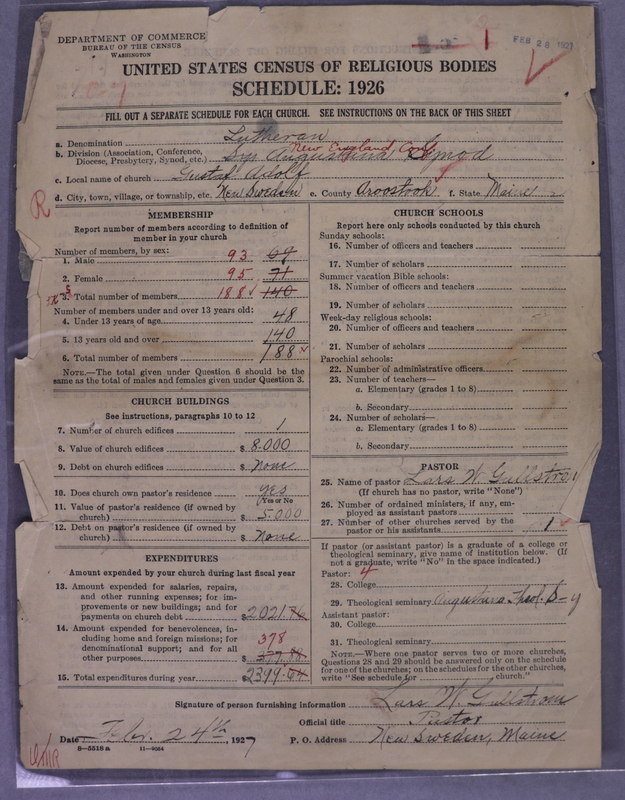 DEPARTMENT OF COMMERCE
BUREAU OF THE CENSUS
WASHINGTON
1
FEB 28 1927
UNITED STATES CENSUS OF RELIGIOUS BODIES
SCHEDULE: 1926
FILL OUT A SEPARATE SCHEDULE FOR EACH CHURCH. SEE INSTRUCTIONS ON THE BACK OF THIS SHEET
a. Denomination Lutheran
New England Conf.
b. Division (Association, Conference, Diocese, Presbytery, Synod, etc.) Augustana Synod
c. Local name of church Gustaf Adolf
d. City, town, village, or township, etc. New Sweden e. County Aroostook f. State Maine
R
MEMBERSHIP
Report number of members according to definition of
member in your church
Number of members, by sex:
1. Male 93 69
2. Female 95 71
3. Total number of members 188 140
Number of members under and over 13 years old:
4. Under 13 years of age 48
5. 13 years old and over 140
6. Total number of members 188
NOTE.—The total given under Question 6 should be
same as the total of males and females given under Question 3.
CHURCH BUILDINGS
See instructions, paragraphs 10 to 12
7. Number of church edifices 1
8. Value of church edifices $ 8.000
9. Debt on church edifices $ None
10. Does church own pastor's residence yes
(Yes or No)
11. Value of pastor's residence (if owned by
church) $ 5.000
12. Debt on pastor's residence (if owned by
church) $ None
EXPENDITURES
Amount expended by your church during last fiscal year
13. Amount expended for salaries, repairs,
and other running expenses; for im-
provements or new buildings; and for
payments on church debt $ 2021.76
14. Amount expended for benevolences, in-
cluding home and foreign missions; for
denominational support; and for all
other purposes $ 378 377.88
15. Total expenditures during year $ 2399.64
CHURCH SCHOOLS
Report here only schools conducted by this church
Sunday schools:
16. Number of officers and teachers
17. Number of scholars
Summer vacation Bible schools:
18. Number of officers and teachers
19. Number of scholars
Week-day religious schools:
20. Number of officers and teachers
21. Number of scholars
Parochial schools:
22. Number of administrative officers
23. Number of teachers—
a. Elementary (grades 1 to 8)
b. Secondary
24. Number of scholars—
a. Elementary (grades 1 to 8)
b. Secondary
PASTOR
25. Name of pastor Lars W. Gullstrom
(If church has no pastor, write "None")
26. Number of ordained ministers, if any, em-
ployed as assistant pastors
27. Number of other churches served by the
pastor or his assistants 1
If pastor (or assistant pastor) is a graduate of a college or
theological seminary, give name of institution below. (If
not a graduate, write "No" in the space indicated.)
Pastor: 4
28. College
29. Theological seminary Augustana Theol. S—y
Assistant pastor:
30. College
31. Theological seminary
NOTE.—Where one pastor serves two or more churches,
Questions 28 and 29 should be answered only on the schedule
for one of the churches; on the schedules for the other churches,
write "See schedule for church."
Signature of person furnishing information Lars W. Gullstrom
Official title Pastor
Date Febr. 24th, 1927 P. O. Address New Sweden, Maine
8—5518 a 11—9084